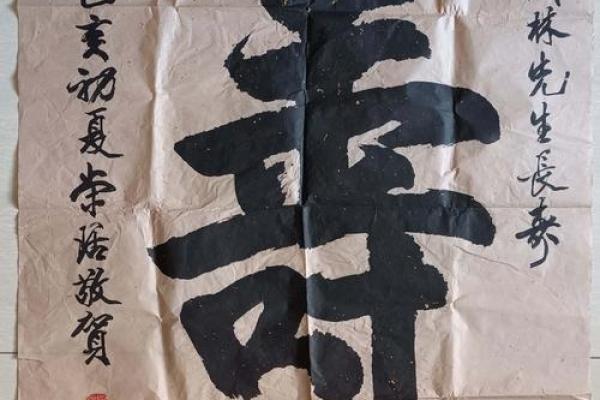 林先生長壽
壽
亥初夏荣琚敬賀